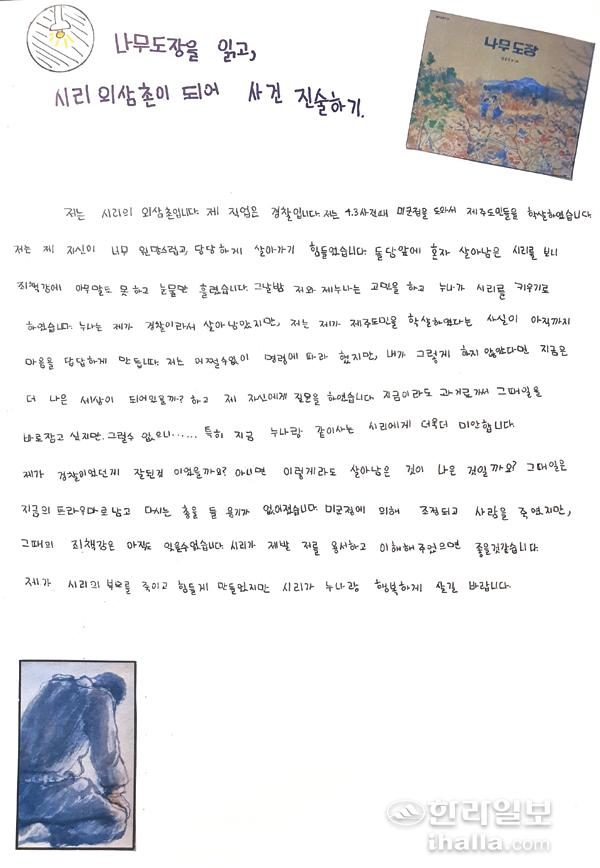 나무도장을 읽고,
시리 외삼촌이 되어 사건 진술하기.
나무 도장
저는 시리의 외삼촌입니다. 제 직업은 경찰입니다. 저는 4.3사건때 미군정을 도와서 제주도민들을 학살하였습니다.
저는 제 자신이 너무 원망스럽고, 당당하게 살아가기 힘들었습니다. 돌담앞에 혼자 살아남은 시리를 보니
죄책감에 아무말도 못 하고 눈물만 흘렸습니다. 그날밤 저와 제누나는 고민을 하고 누나가 시리를 키우기로
하였습니다. 누나는 제가 경찰이라서 살아남았지만, 저는 제가 제주도민을 학살하였다는 사실이 아직까지
마음을 답답하게 만듭니다. 저는 어쩔수없이 명령에 따라 했지만, 내가 그렇게 하지 않았다면 지금은
더 나은 세상이 되어있을까? 하고 제 자신에게 질문을 하였습니다. 지금이라도 과거로가서 그때일을
바로잡고 싶지만. 그럴수 없으니…… 특히 지금 누나랑 같이사는 시리에게 더욱더 미안합니다.
제가 경찰이었던게 잘된것 이었을까요? 아니면 이렇게라도 살아남은 것이 나은 것일까요? 그때일은
지금의 트라우마로 남고 다시는 총을 들 용기가 없어졌습니다. 미군정에 의해 조정되고 사람을 죽였지만,
그때의 죄책감은 아직도 있을수없습니다. 시리가 제발 저를 용서하고 이해해 주었으면 좋을것같습니다.
제가 시리의 부모를 죽이고 힘들게 만들었지만 시리가 누나랑 행복하게 살길 바랍니다.
한라일보
ihalla.com